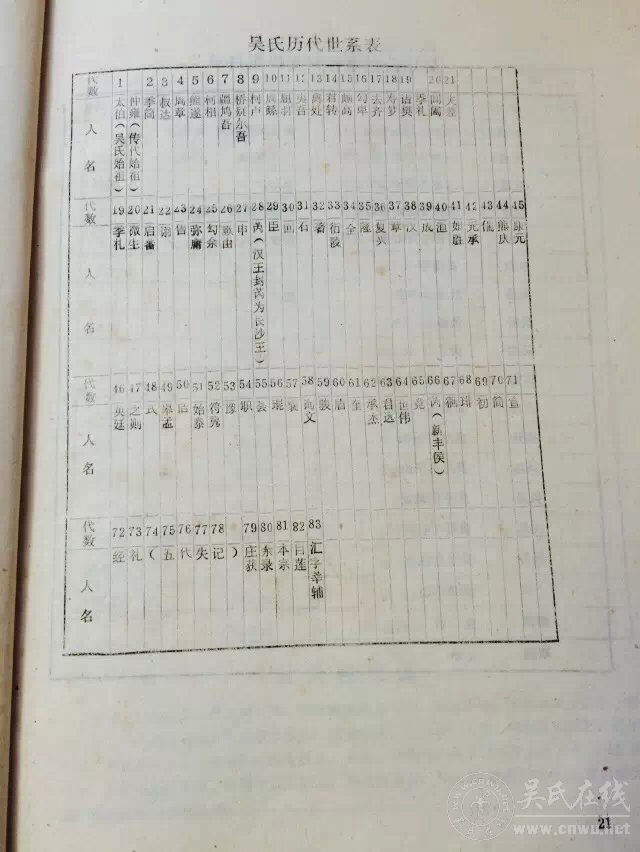 吴氏历代世系表
代数 1 2 3 4 5 6 7 8 9 10 11 12 13 14 15 16 17 18 19 20 21
人名 太伯(吴氏始祖) 仲雍(传代始祖) 季简 叔达 周章 熊遂 柯相 疆鸠吾 柯卢 周繇 夷吾 禽处 颇高 句卑 去齐 寿梦 诸樊 季礼 阖闾 夫差
代数 19 20 21 22 23 24 25 26 27 28 29 30 31 32 33 34 35 36 37 38 39 40 41 42 43 44 45
人名 季札 启蕃 弥庸 句余 申 芮(汉王封芮为长沙王) 臣 回 右 著 全 隆 复兴 章 汉 成 如胜 元承 熊庆 康元
代数 46 47 48 49 50 51 52 53 54 55 56 57 58 59 60 61 62 63 64 65 66 67 68 69 70 71
人名 英廷 之则 始泰 豫 职 芸 琨 高文 骏 盾 全 承杰 君远 世伟 芮(新丰侯) 初 简 宣
代数 72 73 74 75 76 77 78 79 80 81 82 83
人名 经 礼 (五代失记) 庄获 东录 本宗 目莲 汇字莘辅
吴氏在线
www.cnwu.net
21